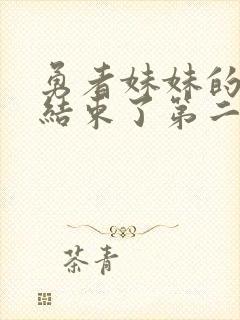 勇者妹妹的
結束了第二
茶青